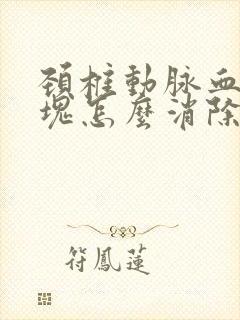 頸椎動脉血
塊怎麼消除
符鳳蓮